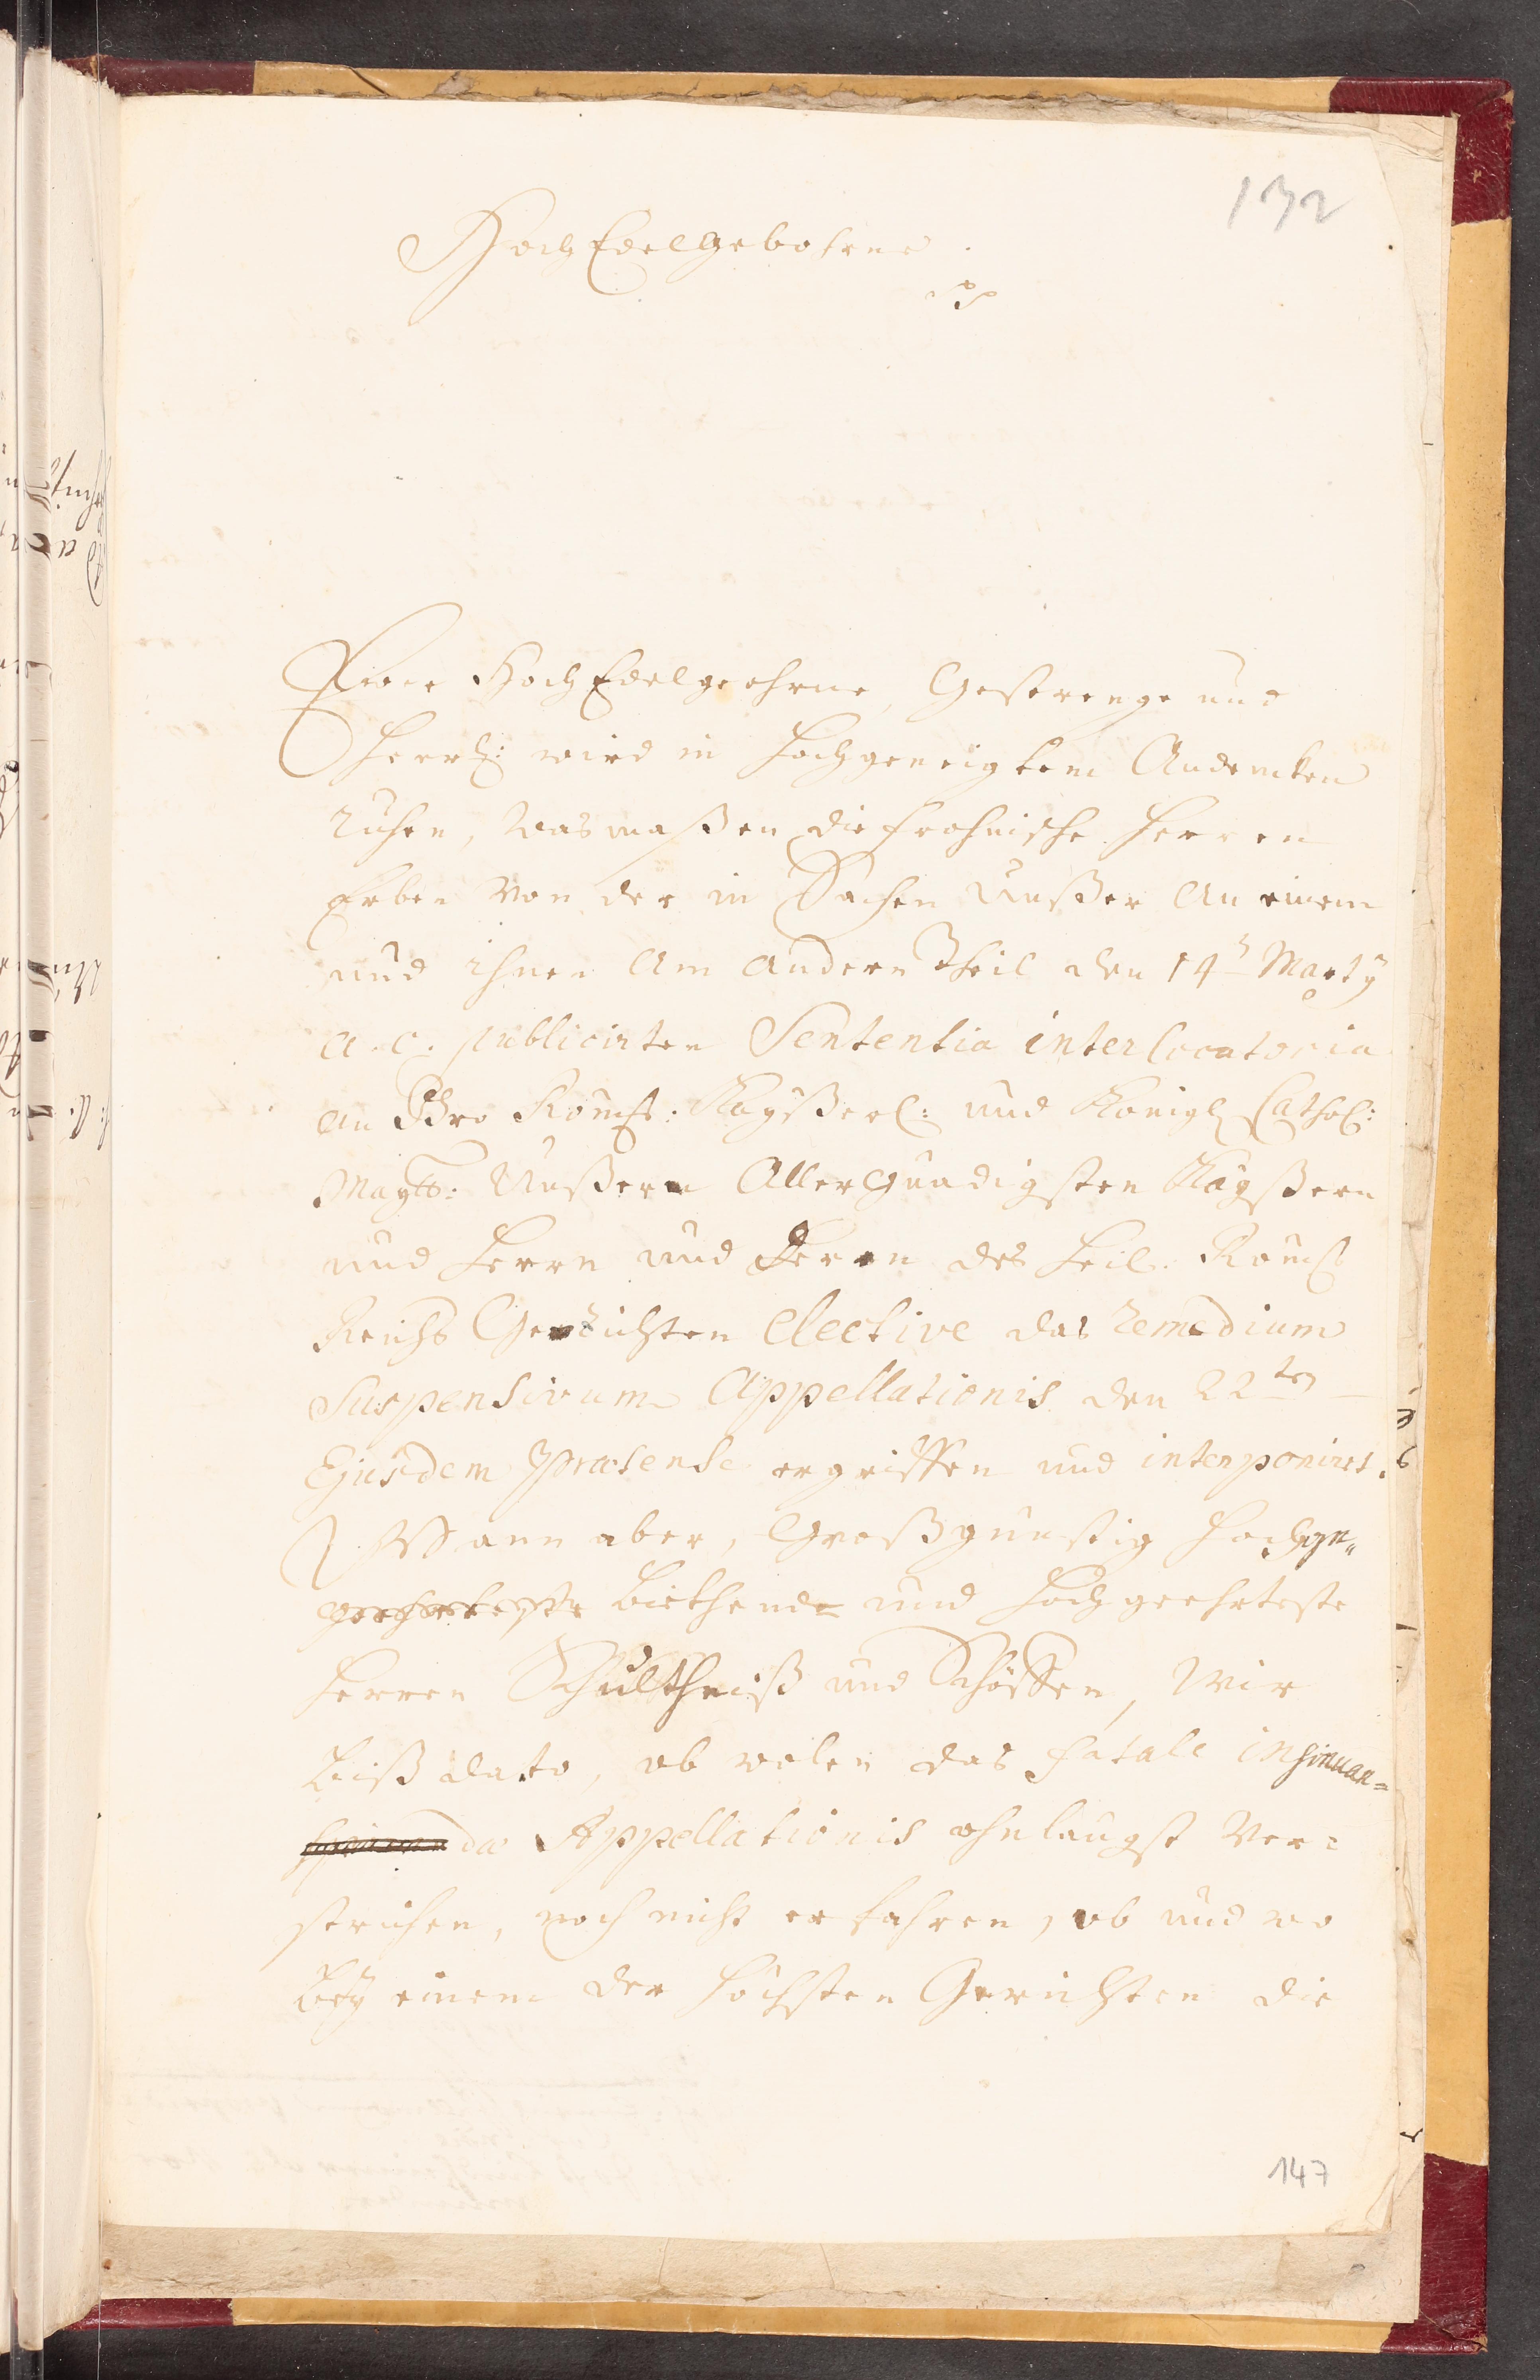 132
HochEdelgebohrne
p
Ewer HochEdelgebohrne, Gestrenge und
Herrl: wird in hochgeneigtem Andencken
ruhen, wasmaßen die frohnische Herren
Erben von der in Sachen Unßer an einem
und ihnen am andern Theil den 14t Martÿ
a. c. publicirten Sententia interlocutoria
an Ihro Römisch: Kayßerl: und Königl Cathol:
Maytt: Unßern Allergnädigsten Kayßern
und Herrn und deren des Heil. Röm
Reichs Gerichten elective das remedium
Suspensivum Appellationis den 22ten
Ejusdem praetense ergriffen und interponirt.
Wann aber, Großgünstig Hochge„
biethende und hochgeehrteste
Herren Schultheiß und Schöffen, Wir
biß dato, ob wolen das fatale insinuan=
dae Appellationis ohnlängst Ver=
strichen, noch nicht erfahren, ob und wo
bey einem der höchsten Gerichten die
147